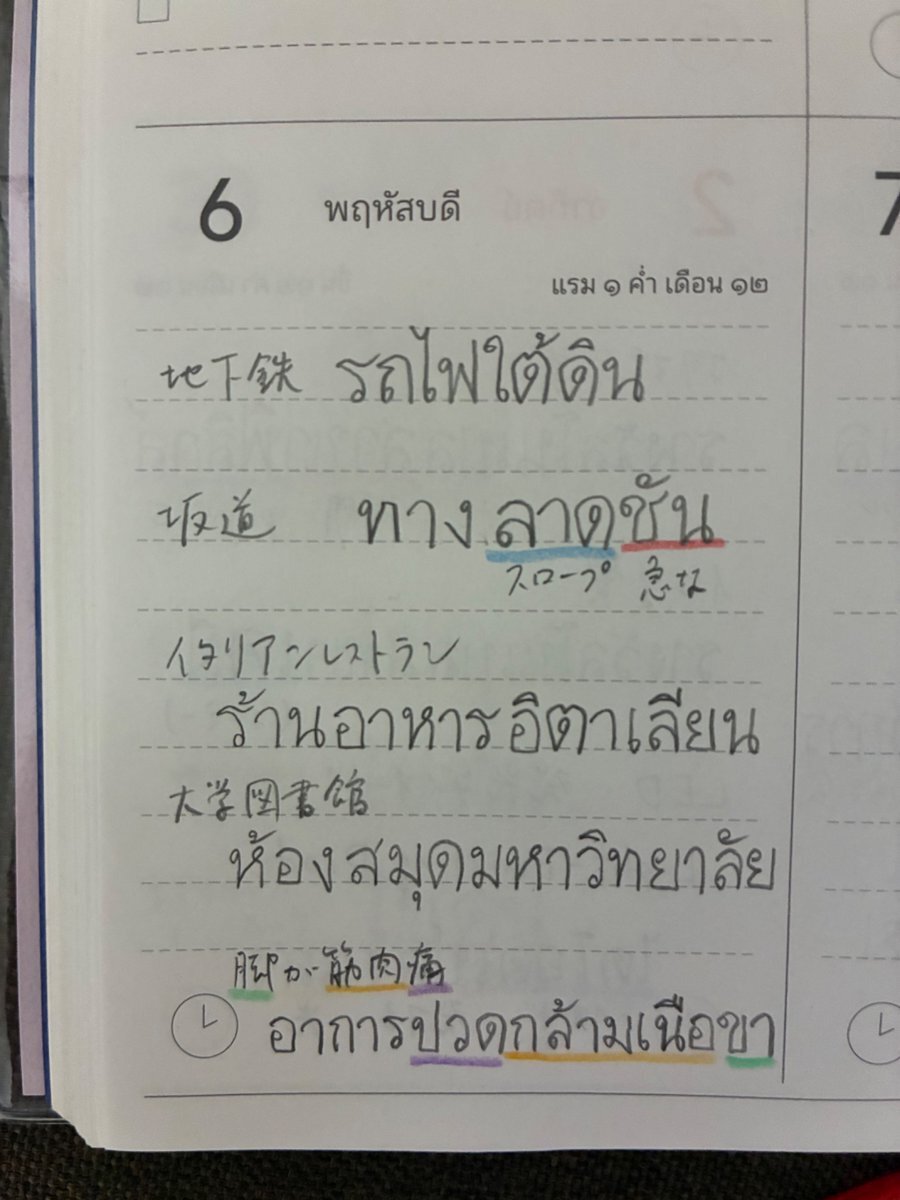 6 พฤหัสบดี
7
แรม ๑ ค่ำ เดือน ๑๒
地下鉄 รถไฟใต้ดิน
坂道 ทางลาดชัน
スロープ 急な
イタリアンレストラン
ร้านอาหารอิตาเลียน
大学図書館
ห้องสมุดมหาวิทยาลัย
脚が筋肉痛
อาการปวดกล้ามเนือขา